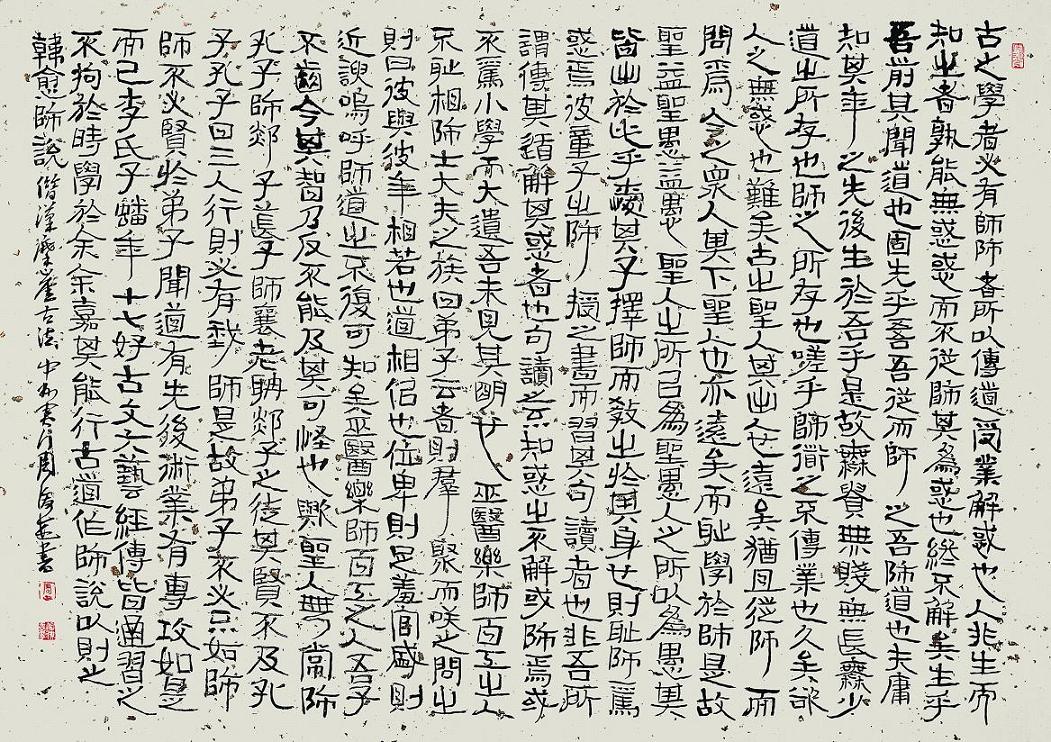 古之學者必有師師者所以傳道受業解惑也人非生而
知之者孰能無惑惑而不從師其為惑也終不解矣生乎
吾前其聞道也固先乎吾吾從而師之吾師道也夫庸
知其年之先後生於吾乎是故無貴無賤無長無少
道之所存也師之所存也嗟乎師道之不傳業也久矣欲
人之無惑也難矣古之聖人其出人也遠矣猶且從師而
問焉今之眾人其下聖人也亦遠矣而恥學於師是故
聖益聖愚益愚也聖人之所已為聖愚人之所以為愚其
皆出於此乎愛其子擇師而教之於其身也則恥師焉
惑焉彼童子之師授之書而習其句讀者也非吾所
謂傳其道解其惑者也句讀之不知惑之不解或師焉或
不焉小學而大遺吾未見其明也巫醫樂師百工之人
不恥相師士大夫之族曰弟子云者則羣聚而笑之問之
則曰彼與彼年相若也道相似也位卑則足羞官盛則
近諛嗚呼師道之不復可知矣巫醫樂師百工之人吾子
不齒今其智乃反不能及其可怪也歟聖人無常師
孔子師郯子萇子師襄老聃郯子之徒其賢不及孔
子孔子曰三人行則必有我師是故弟子不必不如師
師不必賢於弟子聞道有先後術業有專攻如是
而已李氏子蟠年十七好古文六藝經傳皆通習之
不拘於時學於余余嘉其能行古道作師說以則之
韓愈師說借漢古法中周書